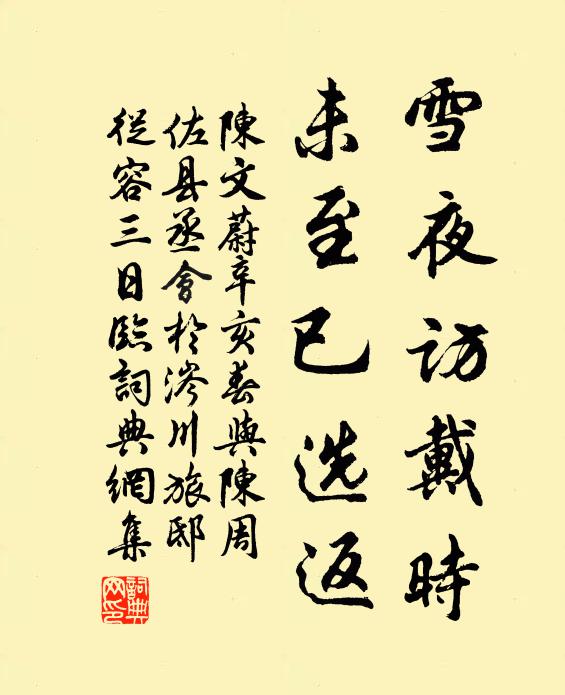 雪夜訪戴時
未至已选返
陳文蔚辛亥春與陳周
佐县丞會於涔川旅邸
從容三日臨詞典網集
詞典网印